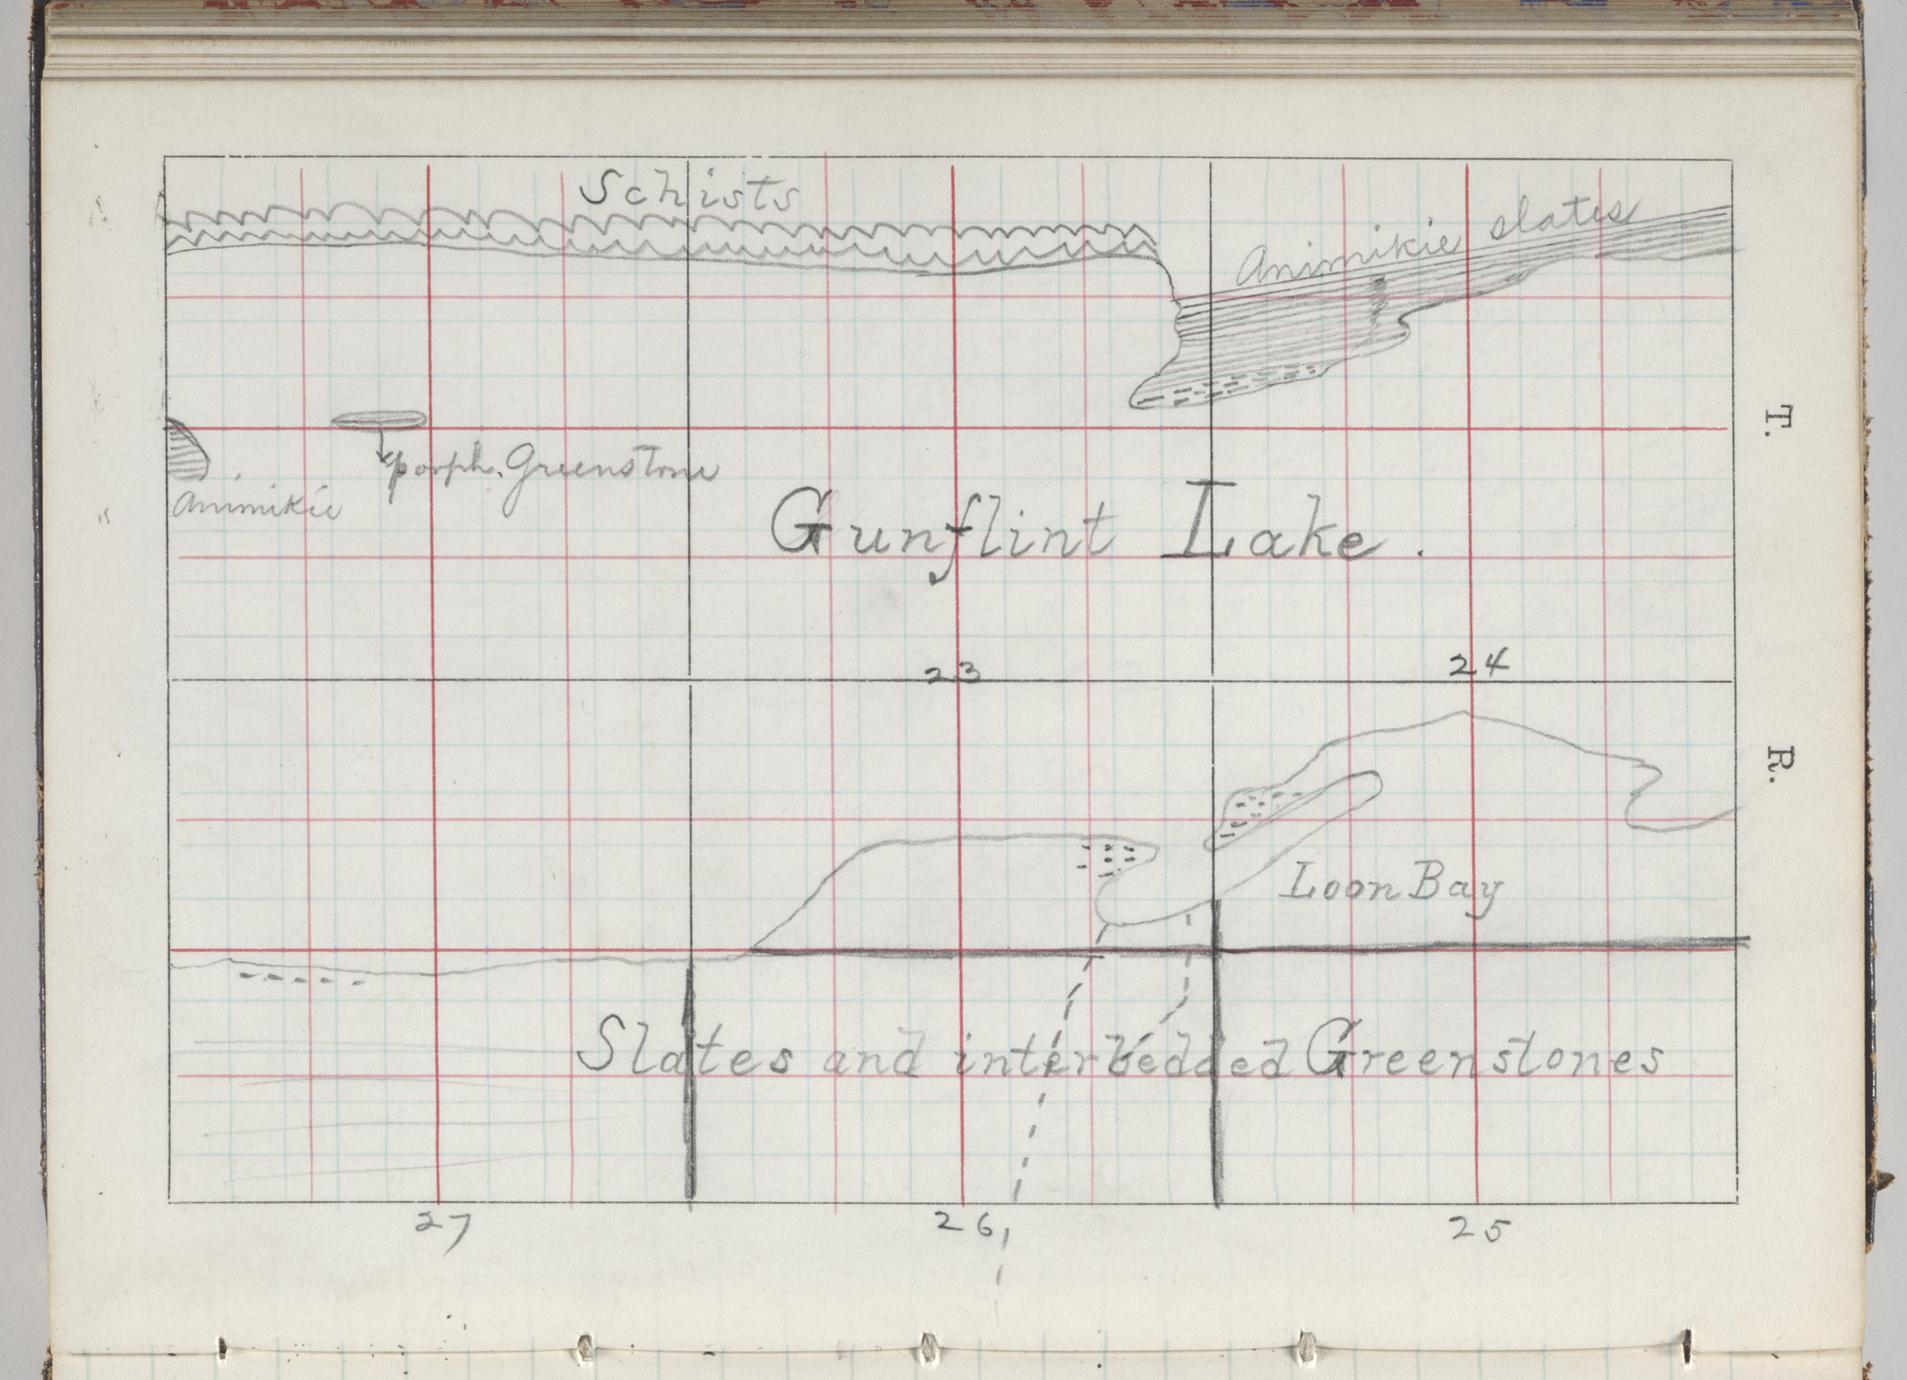 Schists
Animikie slates
T.
porph. Greenstone
Animikie
Gunflint Lake.
23
24
R.
Loon Bay
Slates and interbedded Greenstones
27
26
25